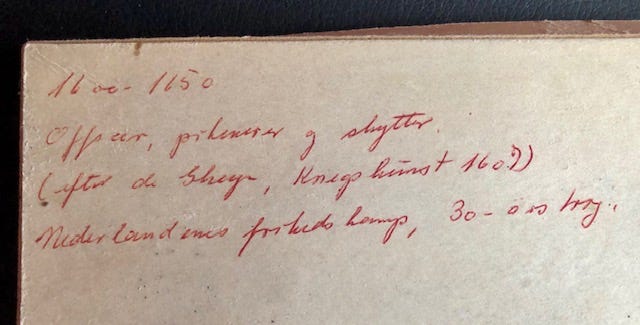 1600-1650
Officer, pikenerer og skytter.
(efter de Gheyn, Kriegskunst 1607)
Nederlandenes frihedskamp, 30-års krig.